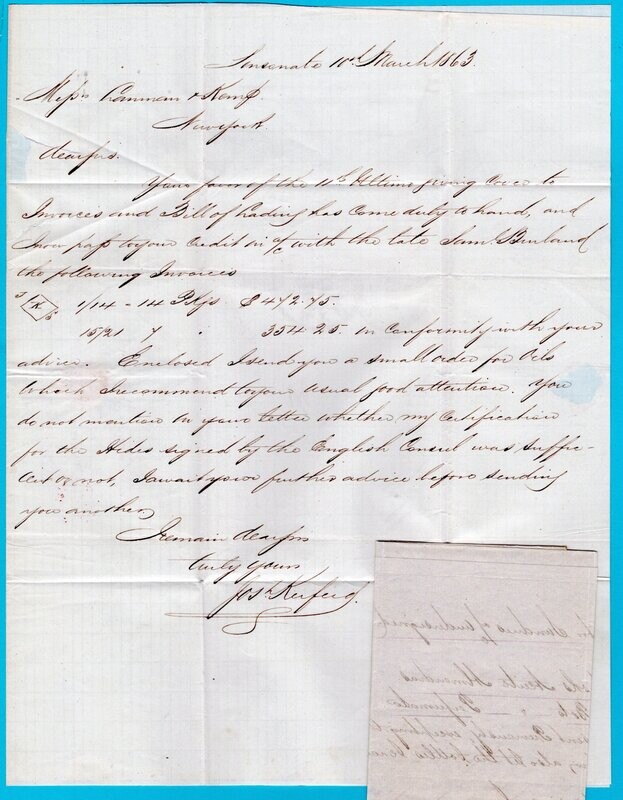 Sonsonate 10th March 1863.
Messrs Lanman & Kemp.
New York
dear sirs.
Your favor of the 11th Ultimo giving cover to
Invoices and Bill of Lading has come duly to hand, and
I now pass to your credit in a/c with the late Saml. Burland
the following Invoices
K 1/14 - 14 Pkgs $ 472.75.
15/21 7 " 354 25. in conformity with your
advice. Enclosed I send you a small order for Oils
which I recommend to your usual good attention. You
do not mention in your letter whether my certification
for the Hides signed by the English Consul was suffic-
ient or not, I await your further advice before sending
you another,
I remain dear sirs
truly yours
Jos. Kerferd.